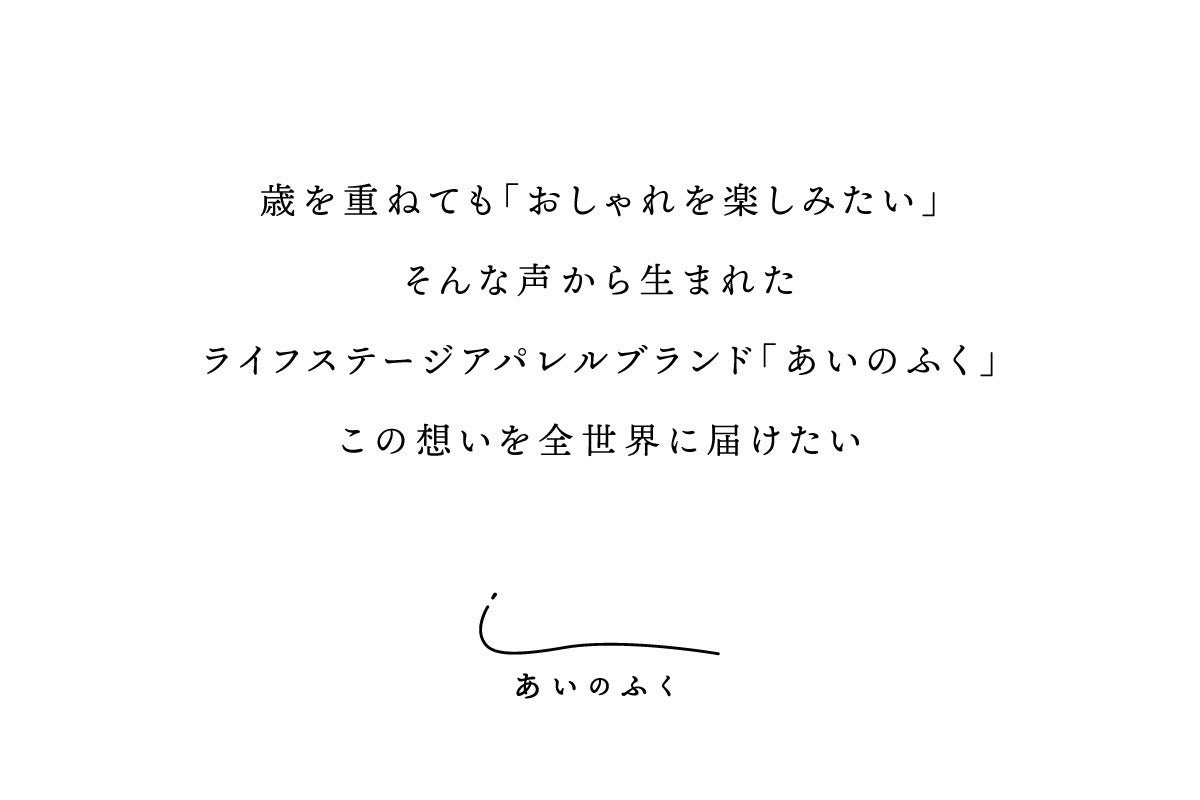 歳を重ねても「おしゃれを楽しみたい」
そんな声から生まれた
ライフステージアパレルブランド「あいのふく」
この想いを全世界に届けたい
あいのふく